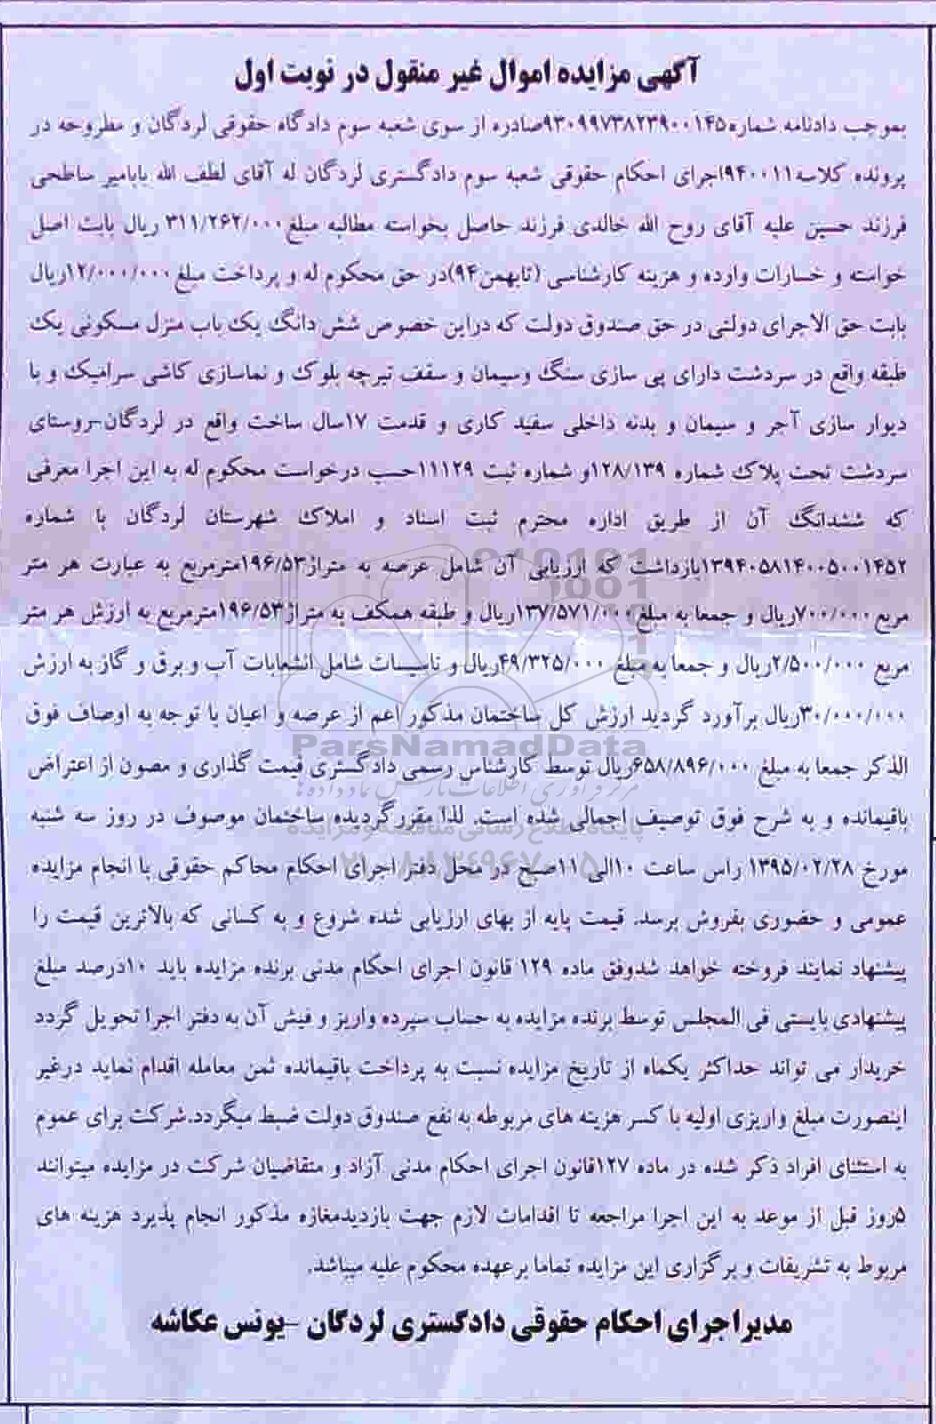 آگهی مزایده اموال غیر منقول در نوبت اول
بموجب دادنامه شماره۹۳۰۹۹۷۳۸۲۳۹۰۰۱۴۵صادره از سوی شعبه سوم دادگاه حقوقی لردگان و مطروحه در
پرونده کلاسه۹۴۰۰۱۱اجرای احکام حقوقی شعبه سوم دادگستری لردگان له آقای لطف الله بابامیر ساطحی
فرزند حسین علیه آقای روح الله خالدی فرزند حاصل بخواسته مطالبه مبلغ۳۱۱/۲۶۲/۰۰۰ ریال بابت اصل
خواسته و خسارات وارده و هزینه کارشناسی (تابهمن۹۴)در حق محکوم له و پرداخت مبلغ ۱۲/۰۰۰/۰۰۰ریال
بابت حق الاجرای دولتی در حق صندوق دولت که دراین خصوص شش دانگ یک باب منزل مسکونی یک
طبقه واقع در سردشت دارای پی سازی سنگ وسیمان و سقف تیرچه بلوک و نماسازی کاشی سرامیک و با
دیوار سازی آجر و سیمان و بدنه داخلی سفید کاری و قدمت ۱۷سال ساخت واقع در لردگان-روستای
سردشت تحت پلاک شماره ۱۲۸/۱۳۹و شماره ثبت ۱۱۱۲۹حسب درخواست محکوم له به این اجرا معرفی
که ششدانگ آن از طریق اداره محترم ثبت اسناد و املاک شهرستان لردگان با شماره
۱۳۹۴۰۵۸۱۴۰۰۵۰۰۱۴۵۲بازداشت که ارزیابی آن شامل عرصه به متراژ۱۹۶/۵۳مترمربع به عبارت هر متر
مربع۷۰۰/۰۰۰ریال و جمعا به مبلغ۱۳۷/۵۷۱/۰۰۰ریال و طبقه همکف به متراژ۱۹۶/۵۳مترمربع به ارزش هر متر
مربع ۲/۵۰۰/۰۰۰ریال و جمعا به مبلغ ۴۹/۳۲۵/۰۰۰ریال و تاسیسات شامل انشعابات آب و برق و گاز به ارزش
۳۰/۰۰۰/۰۰۰ریال برآورد گردید ارزش کل ساختمان مذکور اعم از عرصه و اعیان با توجه به اوصاف فوق
الذکر جمعا به مبلغ ۶۵۸/۸۹۶/۰۰۰ریال توسط کارشناس رسمی دادگستری قیمت گذاری و مصون از اعتراض
باقیمانده و به شرح فوق توصیف اجمالی شده است. لذا مقررگردیده ساختمان موصوف در روز سه شنبه
مورخ ۱۳۹۵/۰۲/۲۸ راس ساعت ۱۰الی ۱۱صبح در محل دفتر اجرای احکام محاکم حقوقی با انجام مزایده
عمومی و حضوری بفروش برسد. قیمت پایه از بهای ارزیابی شده شروع و به کسانی که بالاترین قیمت را
پیشنهاد نمایند فروخته خواهد شدوفق ماده ۱۲۹ قانون اجرای احکام مدنی برنده مزایده باید ۱۰درصد مبلغ
پیشنهادی بایستی فی المجلس توسط برنده مزایده به حساب سپرده واریز و فیش آن به دفتر اجرا تحویل گردد
خریدار می تواند حداکثر یکماه از تاریخ مزایده نسبت به پرداخت باقیمانده ثمن معامله اقدام نماید درغیر
اینصورت مبلغ واریزی اولیه با کسر هزینه های مربوطه به نفع صندوق دولت ضبط میگردد.شرکت برای عموم
به استثنای افراد ذکر شده در ماده ۱۲۷قانون اجرای احکام مدنی آزاد و متقاضیان شرکت در مزایده میتوانند
۵روز قبل از موعد به این اجرا مراجعه تا اقدامات لازم جهت بازدیدمغازه مذکور انجام پذیرد هزینه های
مربوط به تشریفات و برگزاری این مزایده تماما برعهده محکوم علیه میباشد.
مدیراجرای احکام حقوقی دادگستری لردگان -یونس عکاشه
ParsNamadData